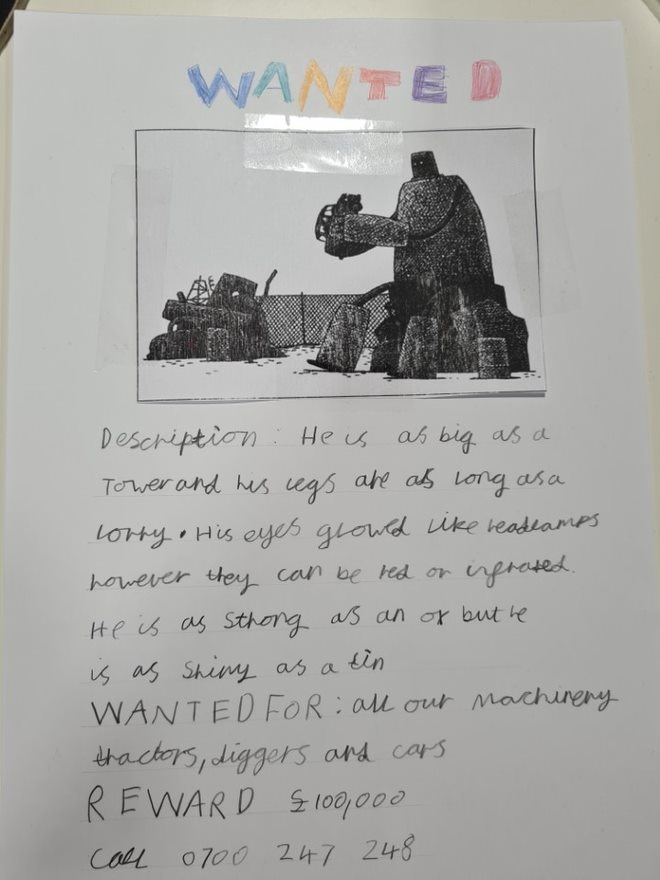 WANTED
Description: He is as big as a
Tower and his legs are as long as a
lorry. His eyes glowed like headlamps
however they can be red or infrared.
He is as strong as an ox but he
is as shiny as a tin
WANTED FOR: all our machinery
tractors, diggers and cars
REWARD £100,000
Call 0700 247 248